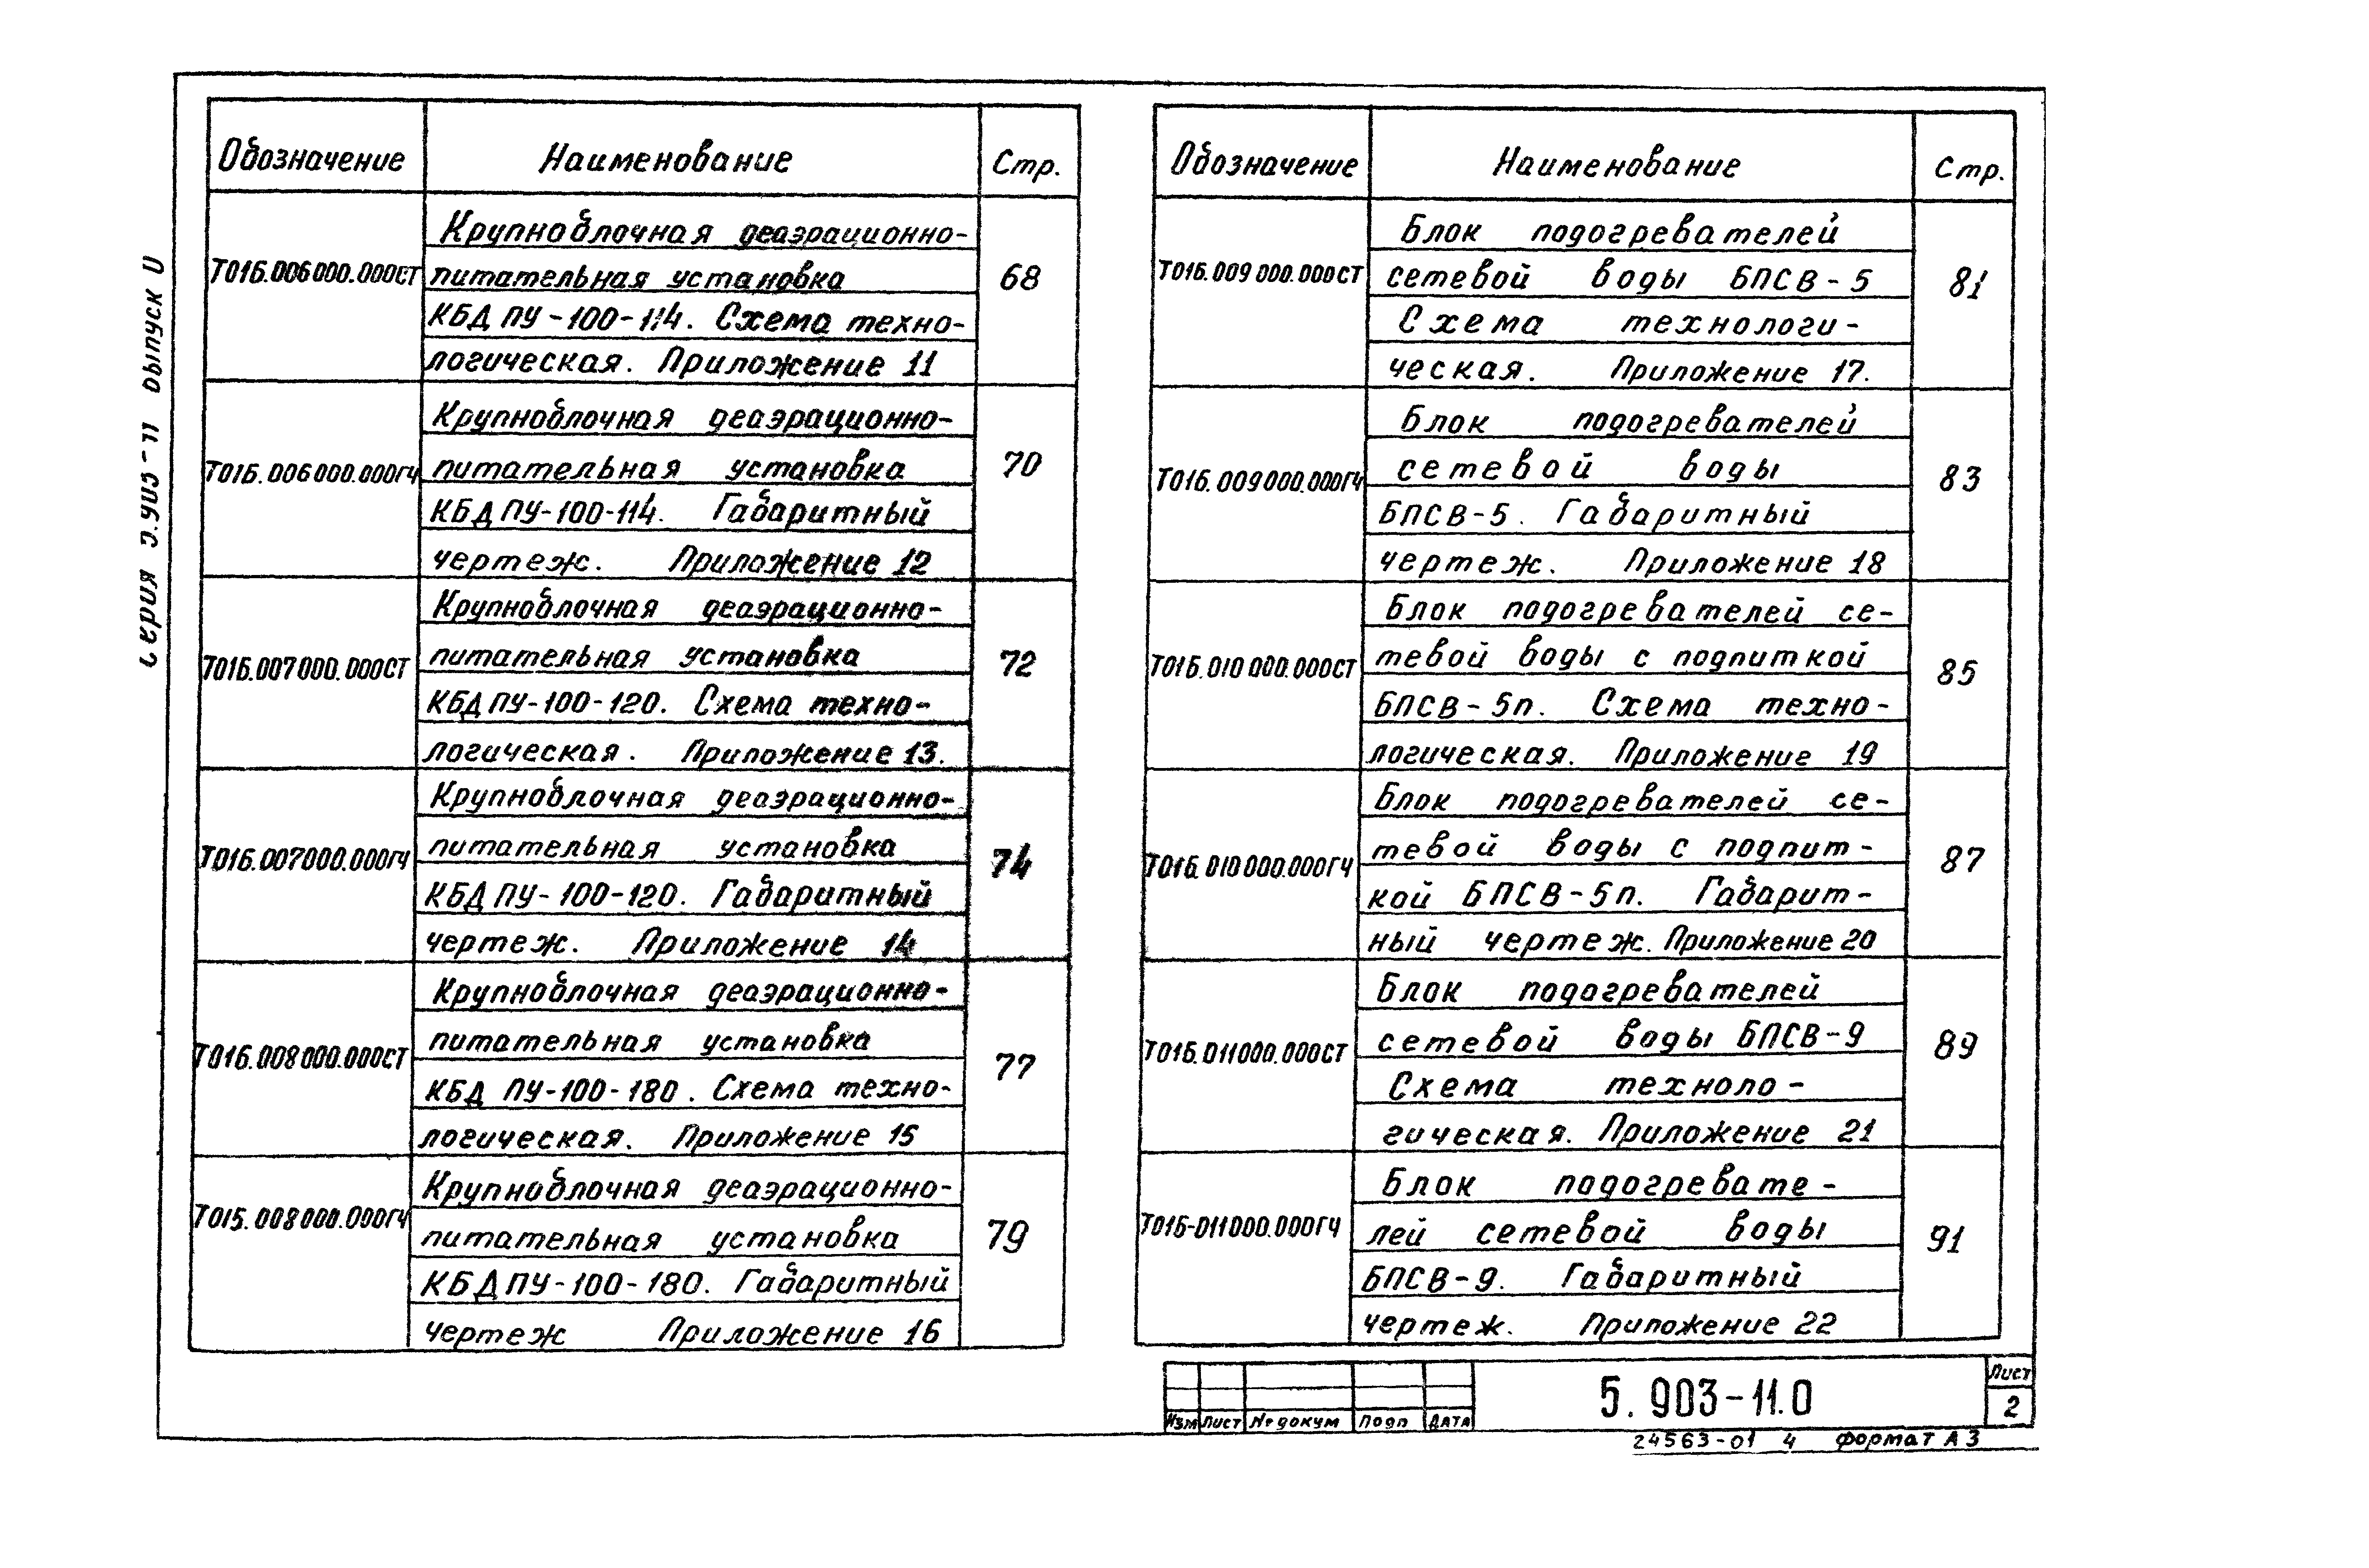 Обозначение Наименование Стр.
Т01Б.006000.000СТ
Крупноблочная деаэрационно-
питательная установка
КБДПУ-100-114. Схема техно-
логическая. Приложение 11
68
Т01Б.006000.000ГЧ
Крупноблочная деаэрационно-
питательная установка
КБДПУ-100-114. Габаритный
чертеж. Приложение 12
70
Т01Б.007000.000СТ
Крупноблочная деаэрационно-
питательная установка
КБДПУ-100-120. Схема техно-
логическая. Приложение 13.
72
Т01Б.007000.000ГЧ
Крупноблочная деаэрационно-
питательная установка
КБДПУ-100-120. Габаритный
чертеж. Приложение 14
74
Т01Б.008000.000СТ
Крупноблочная деаэрационно-
питательная установка
КБД ПУ-100-180. Схема техно-
логическая. Приложение 15
77
Т015.008000.000ГЧ
Крупноблочная деаэрационно-
питательная установка
КБДПУ-100-180. Габаритный
чертеж Приложение 16
79
Обозначение Наименование Стр.
Т01Б.009000.000СТ
Блок подогревателей
сетевой воды БПСВ-5
Схема технологи-
ческая. Приложение 17.
81
Т01Б.009000.000ГЧ
Блок подогревателей
сетевой воды
БПСВ-5. Габаритный
чертеж. Приложение 18
83
Т01Б.010000.000СТ
Блок подогревателей се-
тевой воды с подпиткой
БПСВ-5п. Схема техно-
логическая. Приложение 19
85
Т01Б.010000.000ГЧ
Блок подогревателей се-
тевой воды с подпит-
кой БПСВ-5п. Габарит-
ный чертеж. Приложение 20
87
Т01Б.011000.000СТ
Блок подогревателей
сетевой воды БПСВ-9
Схема техноло-
гическая. Приложение 21
89
Т01Б-011000.000ГЧ
Блок подогревате-
лей сетевой воды
БПСВ-9. Габаритный
чертеж. Приложение 22
91
Изм Лист № докум Подп Дата
5.903-11.0
Лист
2
24563-01 4 Формат А3
выпуск 0